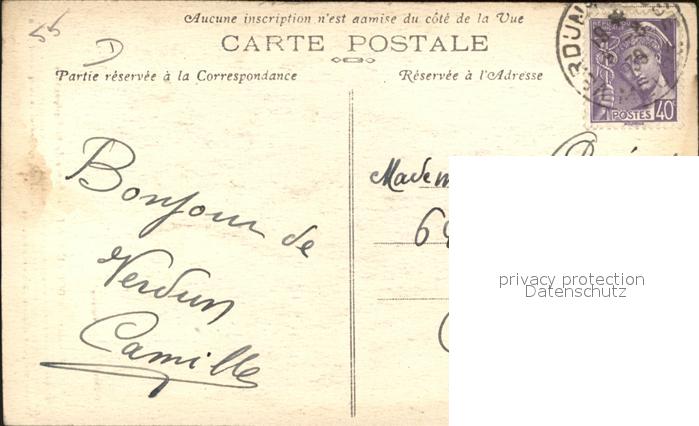 55
D
Aucune inscription n'est aamise du côté de la Vue
CARTE POSTALE
Partie réservée à la Correspondance
Réservée à l'Adresse
POSTES 40
Bonjour de
Verdun
Camille
Madem
6
privacy protection
Datenschutz